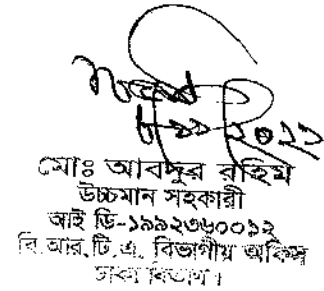 মোঃ আবদুর রহিম
উচ্চমান সহকারী
আই ডি-১৯৯২৩৬০০১২
বি.আর.টি.এ. বিভাগীয় অফিস
ঢাকা বিভাগ।